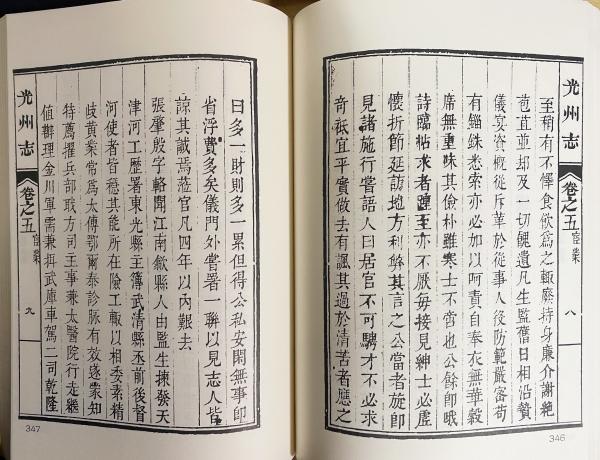 光州志
卷之五
宦業
八
至稍有不懌食飲爲之輟廢持身廉介謝絕
苞苴並却及一切餽遺凡生監舊日相沿贄
儀宴資概從斥革於從事人役防範嚴密苟
有錙銖悉索亦必加以呵責自奉衣無華縠
席無重味其儉朴雖寒士不啻也公餘卽哦
詩臨帖求者踵至亦不厭每接見紳士必虛
懷折節延訪地方利弊其言之公當者旋卽
見諸施行嘗語人曰居官不可騁才不必求
奇祗宜平實做去有諷其過於清苦者應之
346
曰多一財則多一累但得公私安閑無事卽
省浮費多矣儀門外嘗署一聯以見志人皆
諒其誠焉蒞官凡四年以內艱去
張肇啟字輅開江南歙縣人由監生揀發天
津河工歷署東光縣主簿武清縣丞前後督
河使者皆穩其能所在險工輒以相委素精
歧黃業常爲太傅鄂爾泰診脈有效遂蒙知
特薦擢兵部職方司主事兼太醫院行走繼
値辦理金川軍需兼拜武庫車駕二司乾隆
光州志
卷之五
宦業
九
347